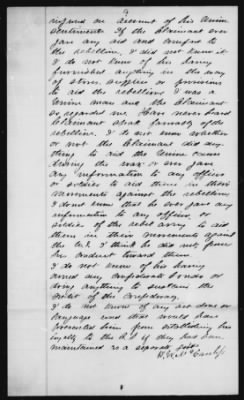 9
refuse on account of his Union
sentiments If the Claimant ever
gave any aid and comfort to
the rebellion, I did not know it
I do not know of his having
furnished anything in the way
of stores supplies or provisions
to aid the rebellion I was a
Union man and the Claimant
so regarded me Have never heard
Claimant speak of the
rebellion. I do not know whether
or not the Claimant did any
thing to aid the Union cause
during the war, or ever gave
any information to any officer
or soldier to aid them in their
movements against the rebellion
I dont know that he ever gave any
information to any officer or
soldier of the rebel army to aid
them in their movements against
the U.S. I think he did not from
his conduct toward them.
I do not know of his having
owned any Confederate bonds or
doing anything to sustain the
credit of the Confederacy.
I do not know of any act done or
language used that would have
prevented him from establishing his
loyalty to the C.S if they had been
maintained as a separate Govt.